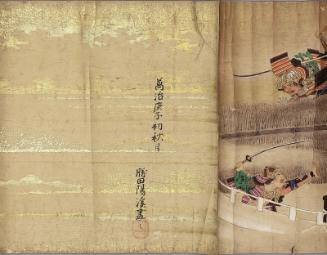 萬治庚子初秋日
勝田陽溪畫